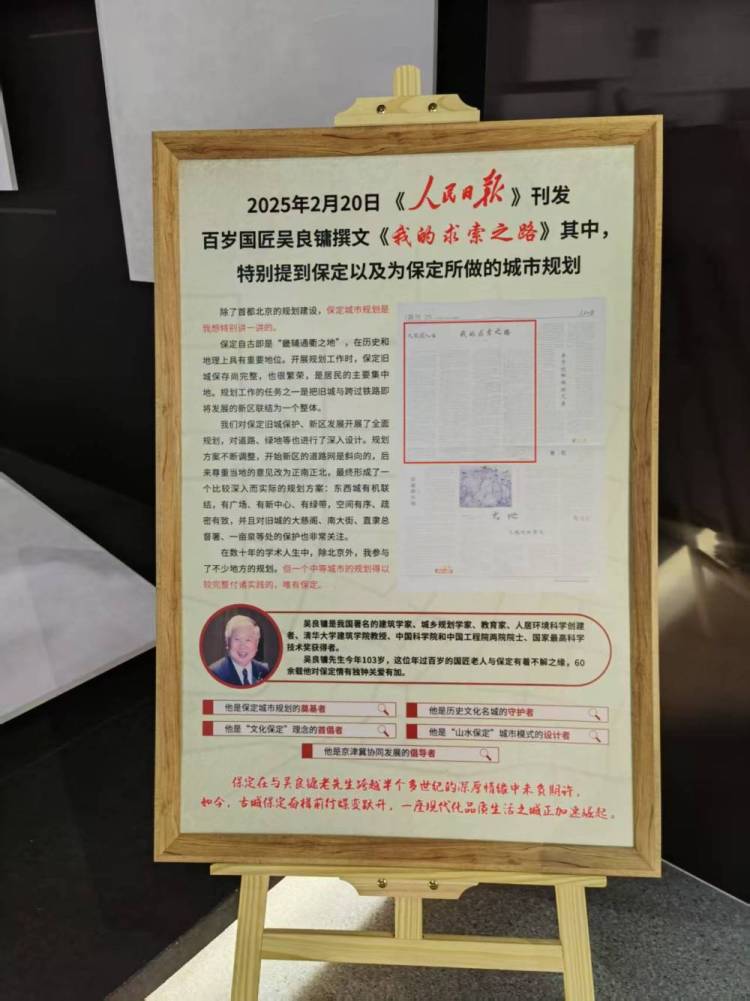 2025年2月20日《人民日报》刊发
百岁国匠吴良镛撰文《我的求索之路》其中，
特别提到保定以及为保定所做的城市规划
除了首都北京的规划建设，保定城市规划是
我想特别讲一讲的。
保定自古即是“畿辅通衢之地”，在历史和
地理上具有重要地位。开展规划工作时，保定旧
城保存尚完整，也很繁荣，是居民的主要集中
地。规划工作的任务之一是把旧城与跨过铁路即
将发展的新区联结为一个整体。
我们对保定旧城保护、新区发展开展了全面
规划，对道路、绿地等也进行了深入设计。规划
方案不断调整，开始新区的道路网是斜向的，后
来尊重当地的意见改为正南正北。最终形成了一
个比较深入而实际的规划方案：东西城有机联
结，有广场、有新中心、有绿带，空间有序、疏
密有致，并且对旧城的大慈阁、南大街、直隶总
督署、一亩泉等处的保护也非常关注。
在数十年的学术人生中，除北京外，我参与
了不少地方的规划。但一个中等城市的规划得以
较完整付诸实践的，唯有保定。
人民日报
我的求索之路
吴良镛是我国著名的建筑学家、城乡规划学家、教育家、人居环境科学创建
者、清华大学建筑学院教授、中国科学院和中国工程院两院院士、国家最高科学
技术奖获得者。
吴良镛先生今年103岁，这位年过百岁的国匠老人与保定有着不解之缘，60
余载他对保定情有独钟关爱有加。
他是保定城市规划的奠基者
他是历史文化名城的守护者
他是“文化保定”理念的首倡者
他是“山水保定”城市模式的设计者
他是京津冀协同发展的倡导者
保定在与吴良镛老先生跨越半个多世纪的深厚情缘中未负期许，
如今，古城保定奋楫前行蝶变跃升，一座现代化品质生活之城正加速崛起。